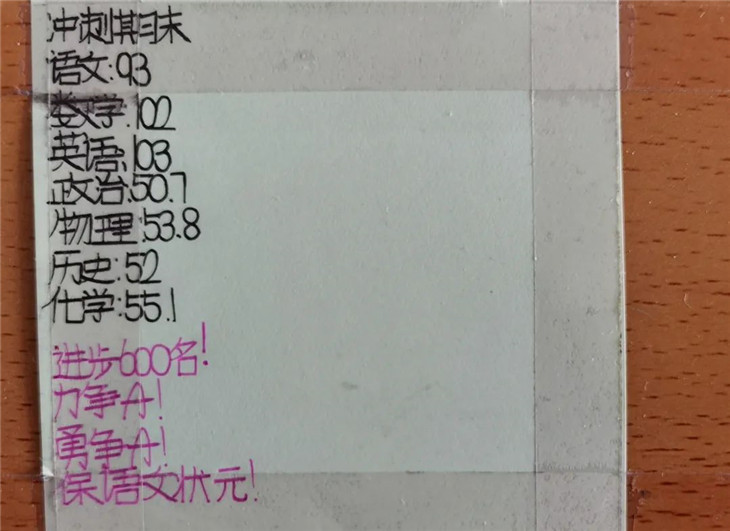 冲刺期末
语文:93
数学:102
英语:103
政治:50.7
物理:53.8
历史:52
化学:55.1
进步600名!
力争A!
勇争A!
保语文状元!